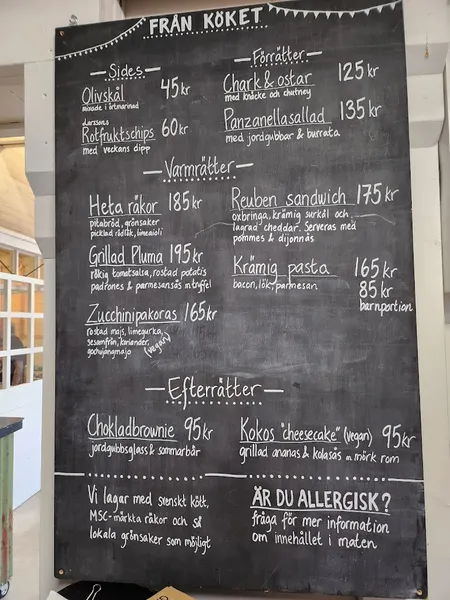 FRÅN KÖKET
Sides
Olivskål 45 kr
Larssons
Rotfruktschips 60 kr
med veckans dipp
Förrätter
Chark & ostar 125 kr
med knäcke och chutney
Panzanellasallad 135 kr
med jordgubbar & burrata
Varmrätter
Heta råkor 185 kr
pitabröd, grönsaker
picklad rödlök, limeaioli
Grillad Pluma 195 kr
rökig tomatsalsa, rostad potatis
padrones & parmesansås m tryffel
Zucchinipakoras 165 kr
rostad majs, limegurka,
sesamfrön, koriander,
gochujangmajo (vegan)
Reuben sandwich 175 kr
oxbringa, krämig surkål och
lagrad cheddar. Serveras med
pommes & dijonnäs
Krämig pasta 165 kr
bacon, lök, parmesan 85 kr
barnportion
Efterrätter
Chokladbrownie 95 kr
jordgubbsglass & sommarbär
Kokos "cheesecake" (vegan) 95 kr
grillad ananas & kolasås m mörk rom
Vi lagar med svenskt kött,
MSC-märkta råkor och så
lokala grönsaker som möjligt
ÄR DU ALLERGISK?
fråga för mer information
om innehållet i maten